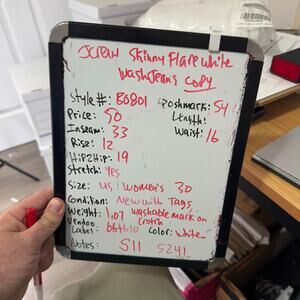 JCREW Skinny Flare White
Wash Jeans copy
Style #: B0801
Poshmark: 54
Price: 50
Length:
Inseam: 33
Waist: 16
Rise: 12
Hip2Hip: 19
Stretch: Yes
Size: US Women's 30
Condition: New with Tags
Weight: 1.07 washable mark on
crotch
Vendoo
Label: Color: White
Notes: S11 5241